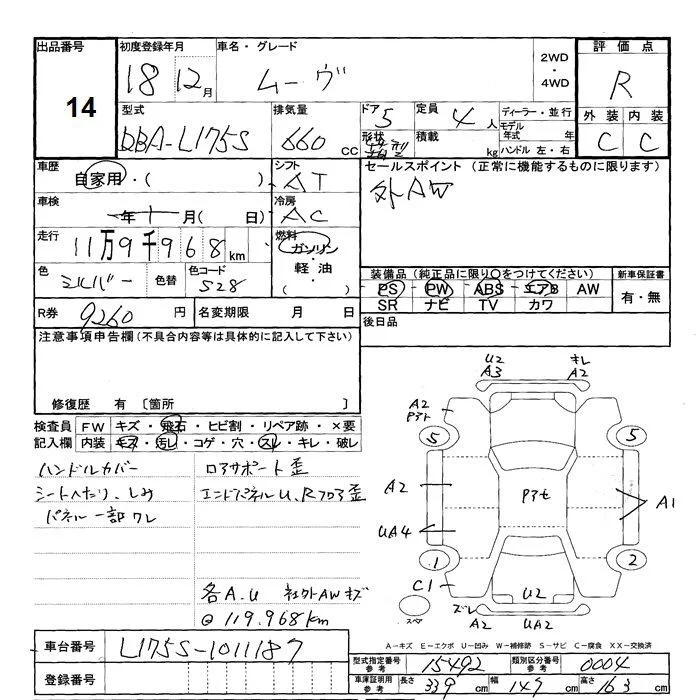 出品番号 14
初度登録年月 18 12月
車名・グレード ムーヴ
2WD・4WD
評価点 R
外装 C 内装 C
型式 DBA-L175S
排気量 660 cc
ドア 5 形状
定員 4人 積載 kg
ディーラー・並行
モデル年式 年
ハンドル 左・右
車歴 自家用・( )
シフト AT
セールスポイント (正常に機能するものに限ります)
外AW
車検 年 月( 日)
冷房 AC
走行 11万9千968km
燃料 ガソリン・軽油・( )
色 シルバー 色替 色コード S28
装備品(純正品に限り○をつけてください)
PS PW ABS エアB AW
SR ナビ TV カワ
新車保証書 有・無
R券 9260円
名変期限 月 日
後日品
注意事項申告欄(不具合内容等は具体的に記入して下さい)
修復歴 有 〔箇所
検査員記入欄
FW キズ・飛石・ヒビ割・リペア跡・×要
内装 キズ・汚レ・コゲ・穴・スレ・キレ・破レ
ハンドルカバー
シートへたり、しみ
パネル一部ワレ
ロアサポート歪
エンドパネルU、Rフロア歪
各A.U 社外AWキズ
@119.968km
U2 A3
キレ A2
A2 Pアト
5 5
A2
Pアセ
A1
UA4
1 2
C1
U2
スペア
ズレ A2 UA2
A-キズ E-エクボ U-凹み W-補修跡 S-サビ C-腐食 XX-交換済
車台番号 L175S-1011187
登録番号
型式指定番号 参考 15492
類別区分番号 参考 0004
車庫証明用 参考 長さ 339cm 幅 147cm 高さ 163cm